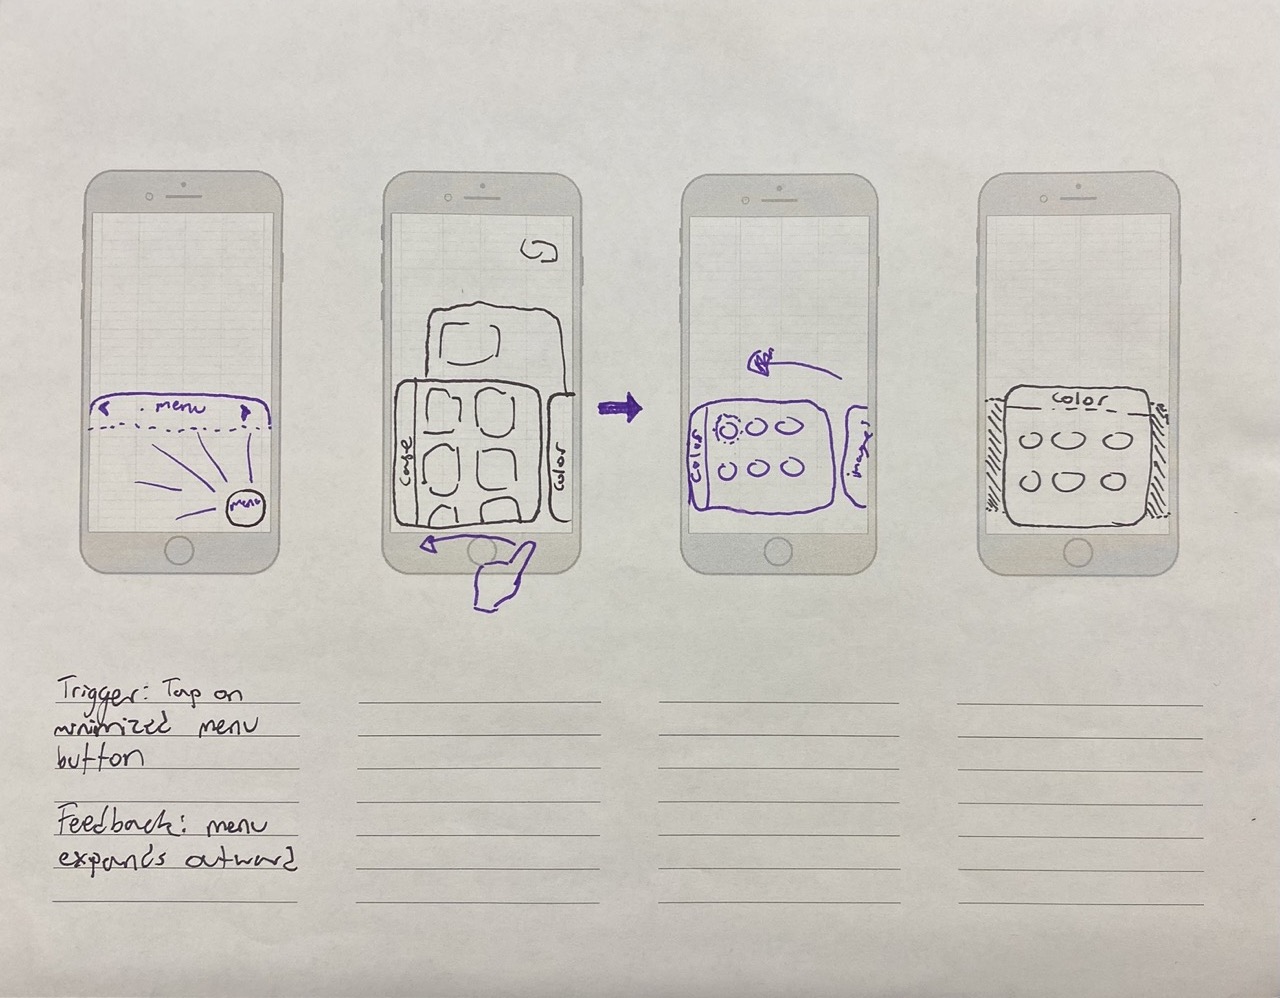 menu
menu
case
color
color
images
color
Trigger: Tap on
minimized menu
button
Feedback: menu
expands outward